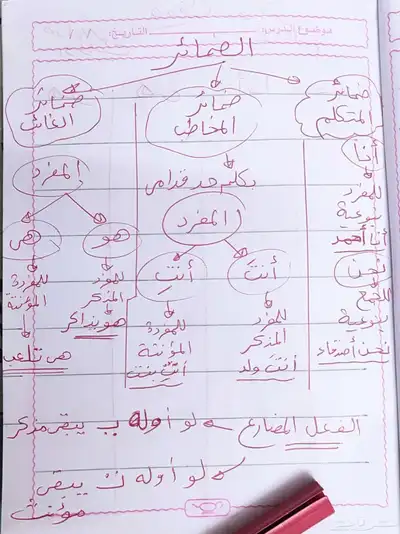 موضوع الدرس: التاريخ:
الضمائر
ضمائر
المتكلم
أنا
للمفرد
بنوعية
أنا أحمد
نحن
للجمع
بنوعية
نحن أصدقاء
ضمائر
المخاطب
بكلم حد قدامى
المفرد
أنتَ
للمفرد
المذكر
أنتَ ولد
أنتِ
للمفردة
المؤنثة
أنتِ بنت
ضمائر
الغائب
المفرد
هو
للمفرد
المذكر
هو يذاكر
هى
للمفردة
المؤنثة
هى تلعب
الفعل المضارع لو أوله يـ يبقى مذكر
لو أوله تـ يبقى
مؤنث